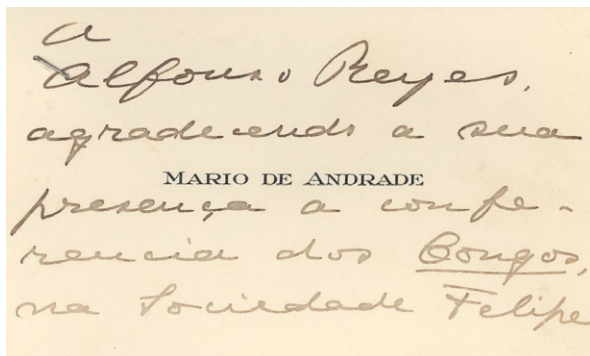 A
Alfonso Reyes,
agradecendo a sua
MARIO DE ANDRADE
presença a confe-
rencia dos Congos,
na Sociedade Felipe